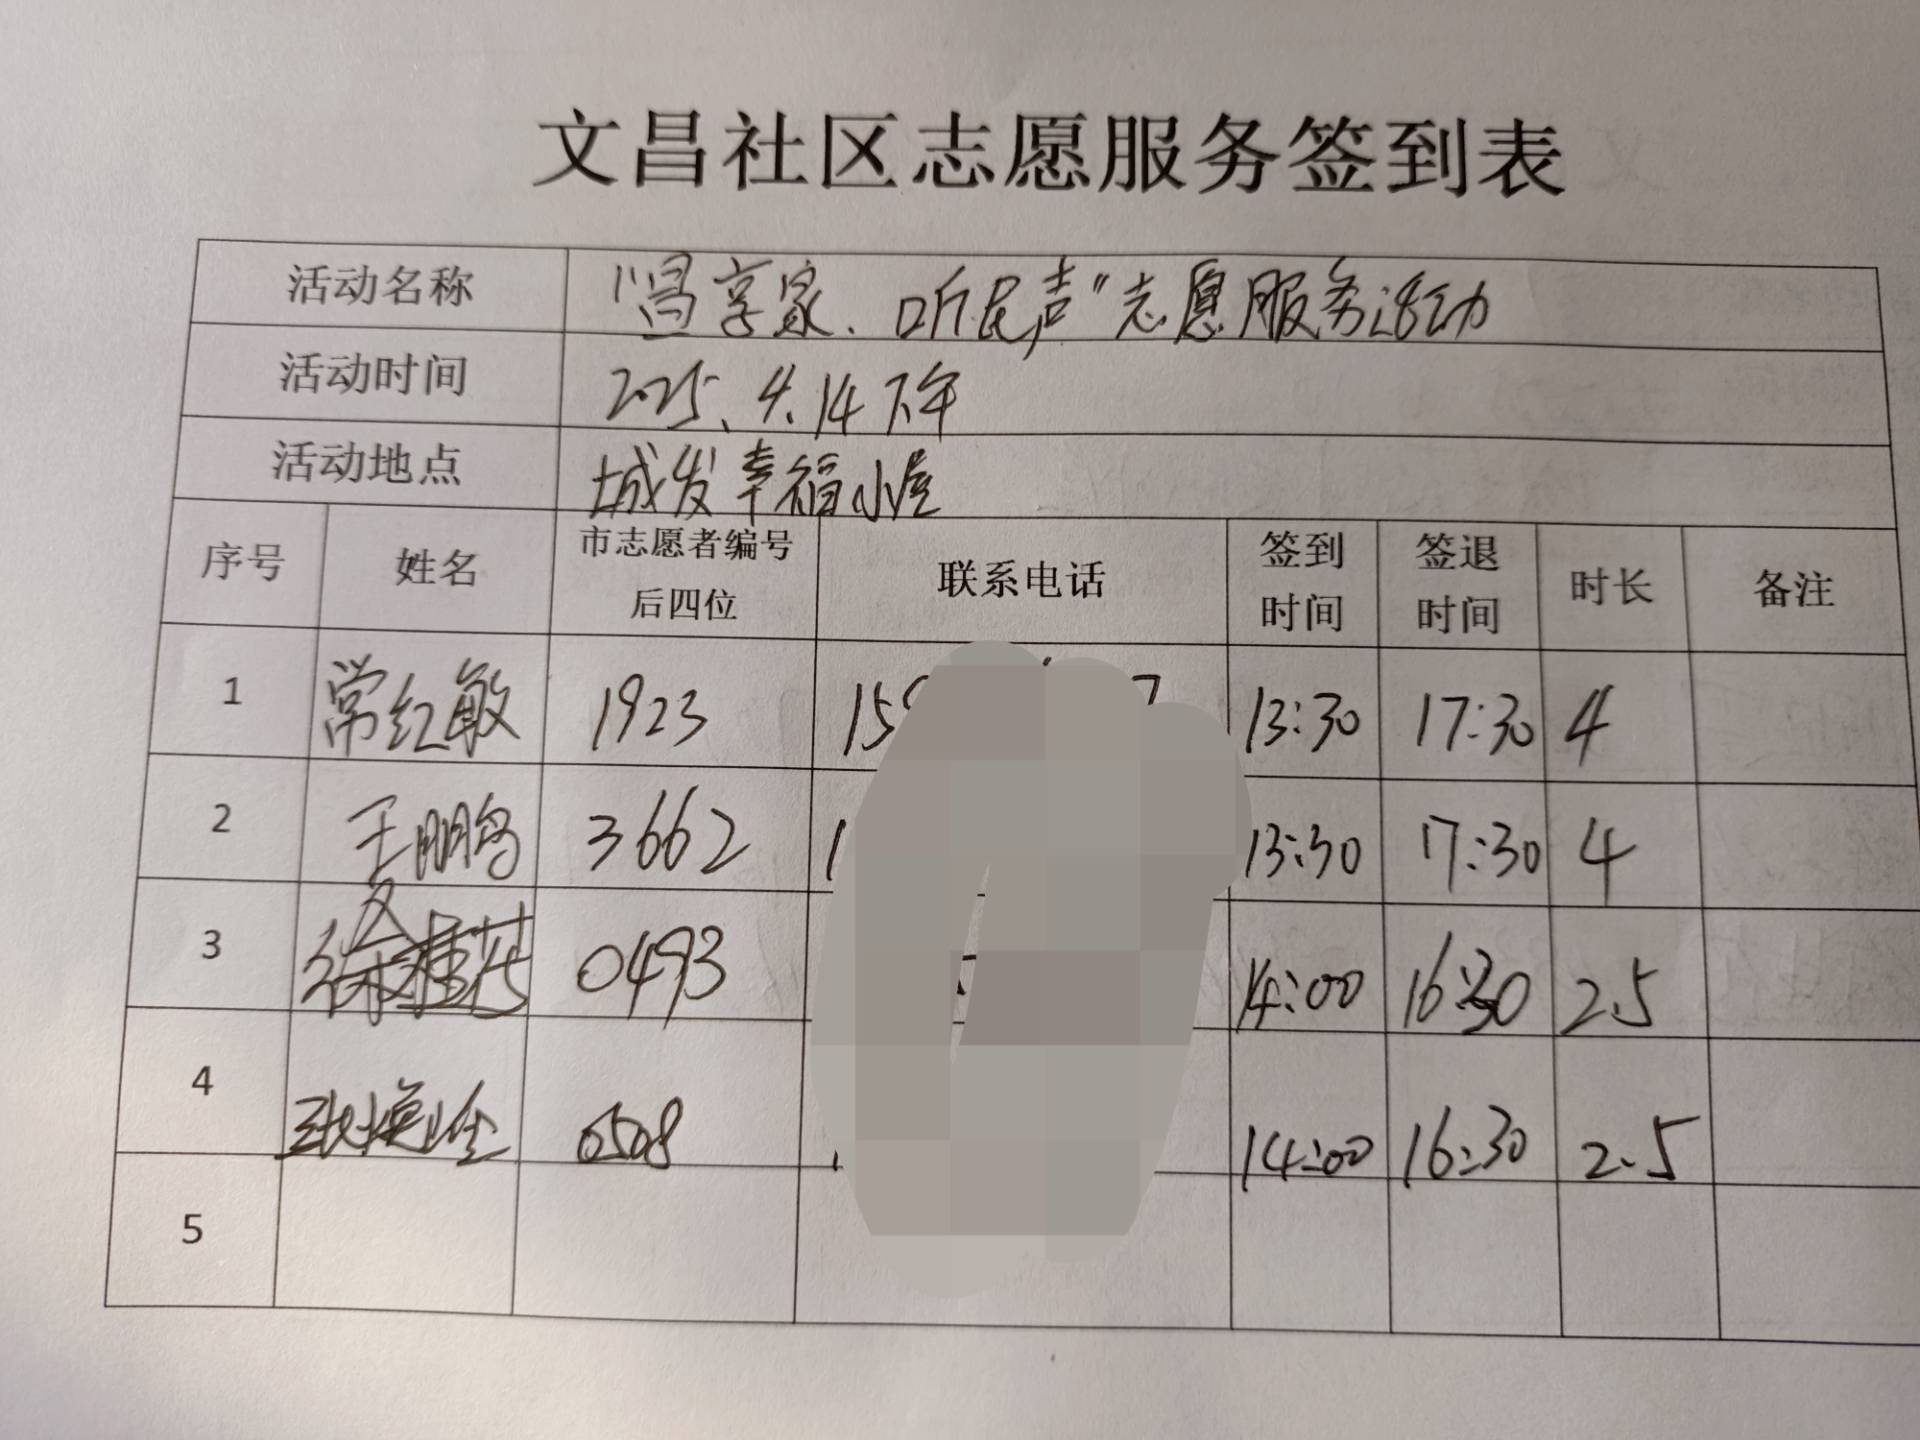 文昌社区志愿服务签到表
活动名称 "昌享家、听民声"志愿服务活动
活动时间 2025、4.14下午
活动地点 城发幸福小屋
序号 姓名 市志愿者编号后四位 联系电话 签到时间 签退时间 时长 备注
1 常红敏 1923 159 7 13:30 17:30 4
2 王鹏 3662 1 13:30 17:30 4
3 徐桂花 0493 14:00 16:30 2.5
4 0508 14:00 16:30 2.5
5